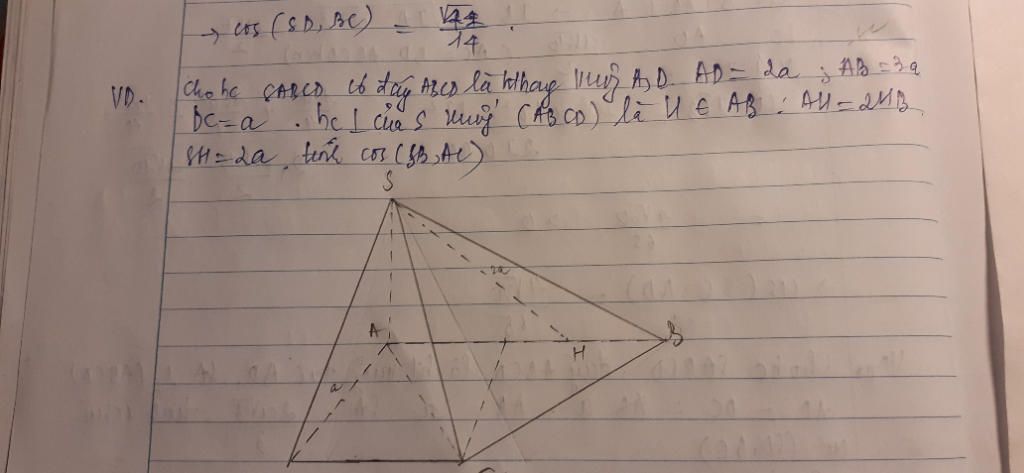 → cos (SD, BC) = √44 / 14 .
VD. Cho hc SABCD có đáy ABCD là hthang vuông A, D. AD = 2a ; AB = 3a
DC = a . hc ⊥ của S xuống (ABCD) là H ∈ AB : AH = 2HB
SH = 2a . tính cos (SB, AC)
S
2a
A
H
B
a